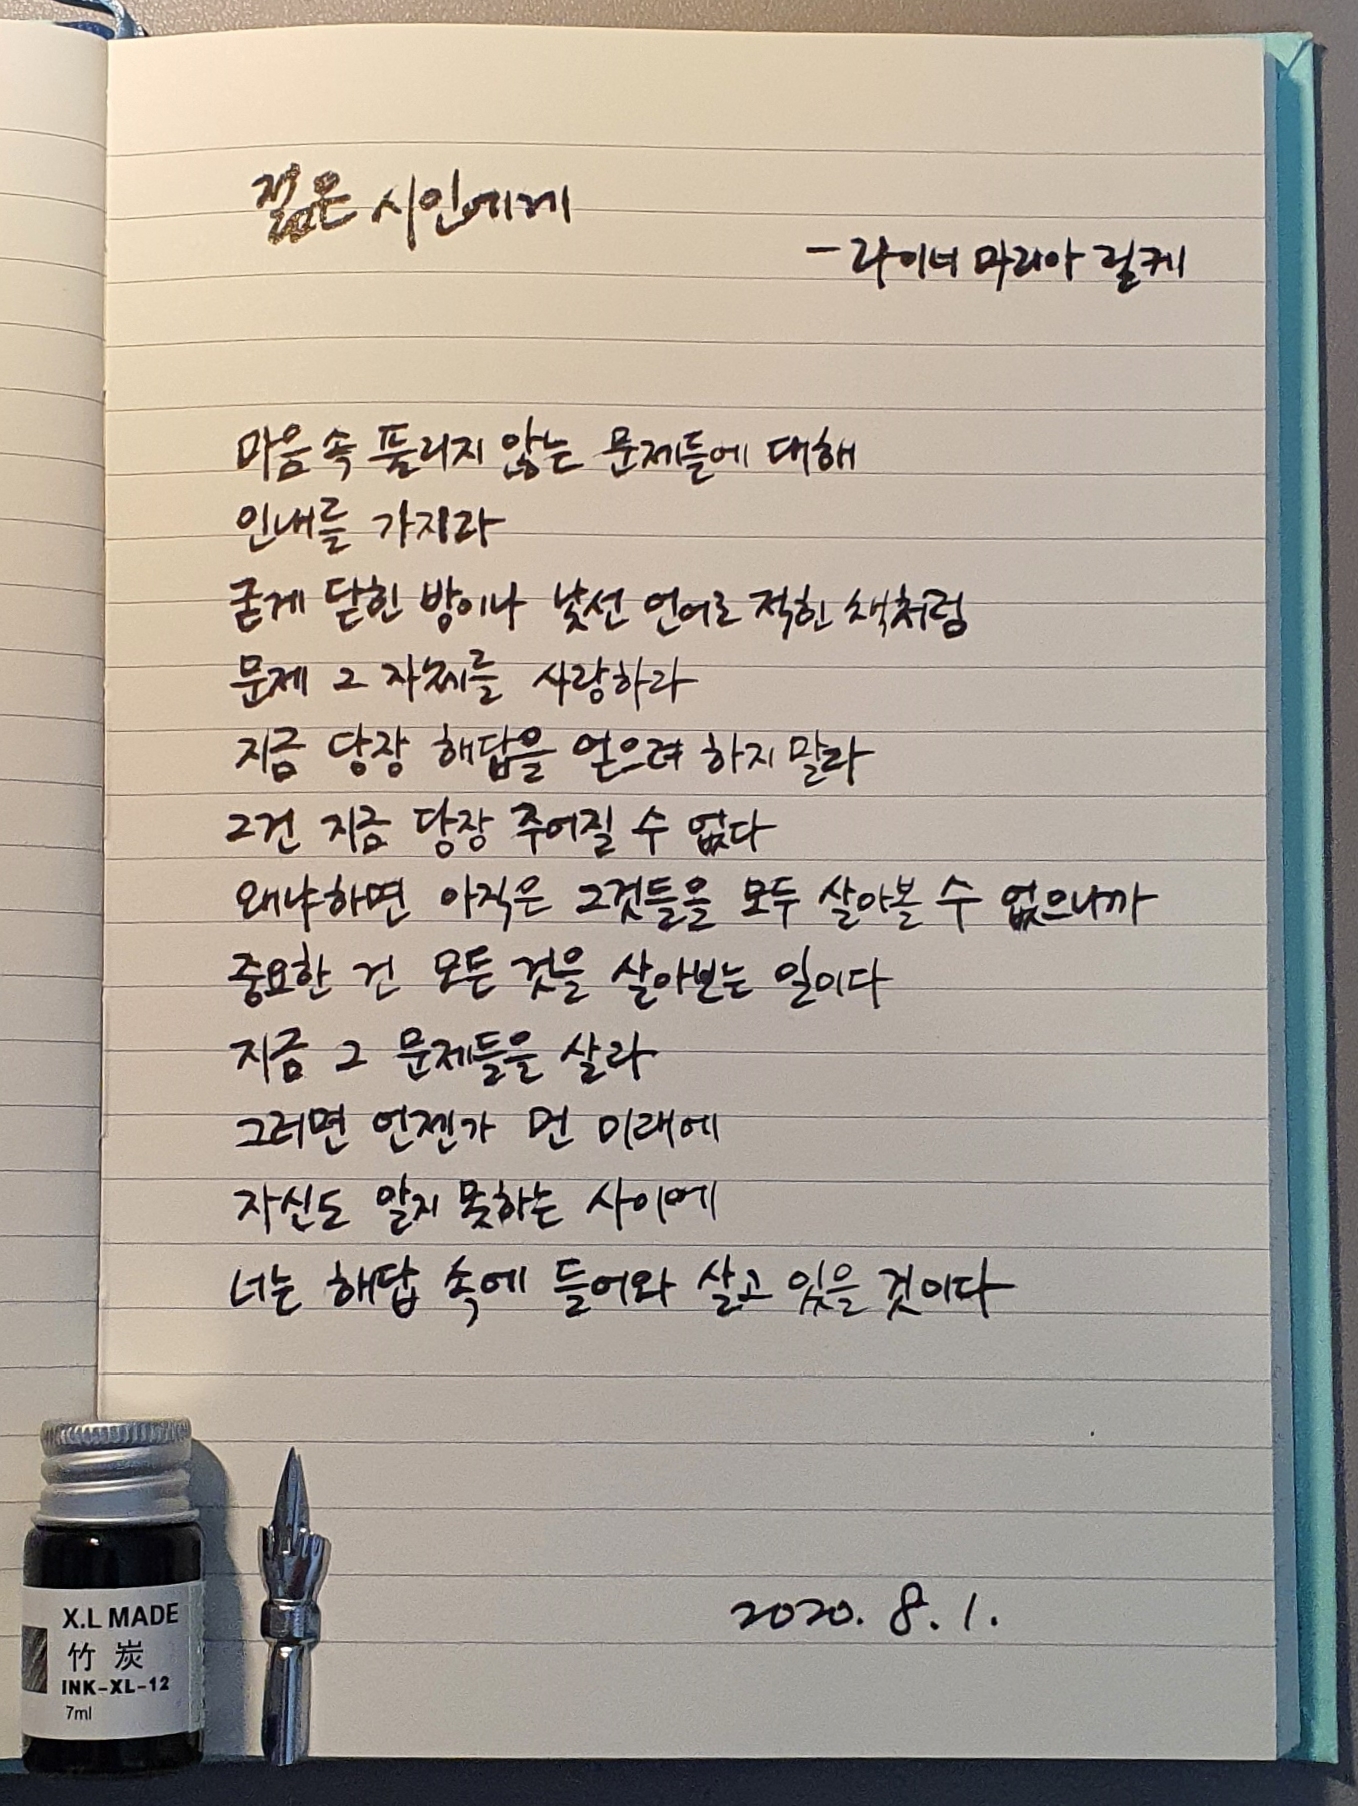 젊은 시인에게
- 라이너 마리아 릴케
마음 속 풀리지 않는 문제들에 대해
인내를 가지라
굳게 닫힌 방이나 낯선 언어로 적힌 책처럼
문제 그 자체를 사랑하라
지금 당장 해답을 얻으려 하지 말라
그건 지금 당장 주어질 수 없다
왜냐하면 아직은 그것들을 모두 살아볼 수 없으니까
중요한 건 모든 것을 살아보는 일이다
지금 그 문제들을 살라
그러면 언젠가 먼 미래에
자신도 알지 못하는 사이에
너는 해답 속에 들어와 살고 있을 것이다
2020. 8. 1.
X.L MADE
竹 炭
INK-XL-12
7ml